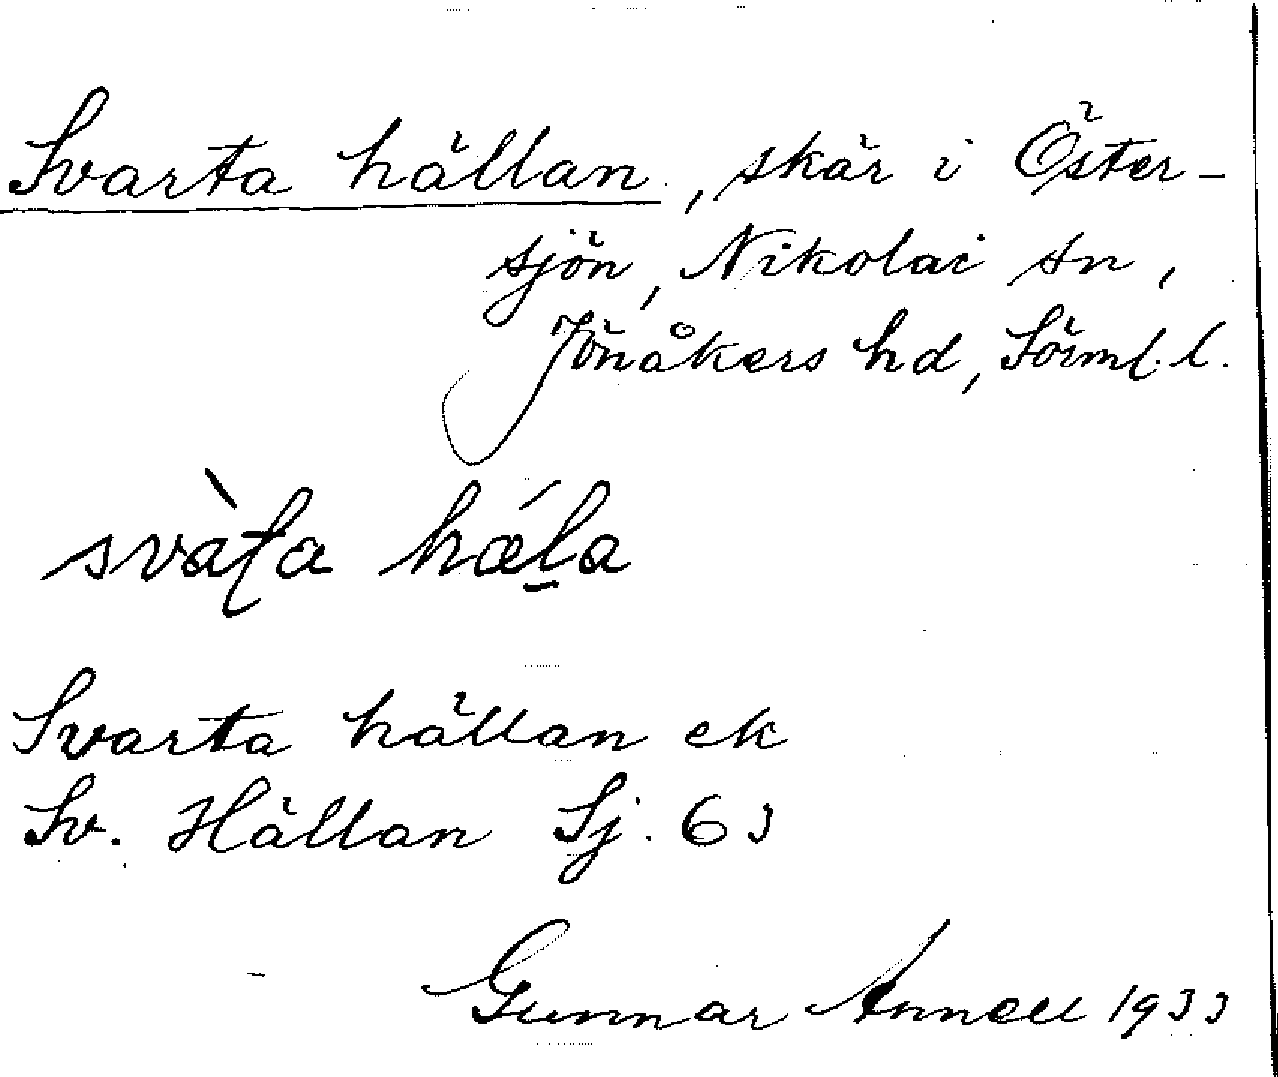 Svarta hällan, skär i Öster-
sjön, Nikolai sn,
Jönåkers hd, Sörml. l.
svàʈa hǽl̠a
Svarta hällan ek
Sv. Hällan Sj. 63
Gunnar Annell 1933